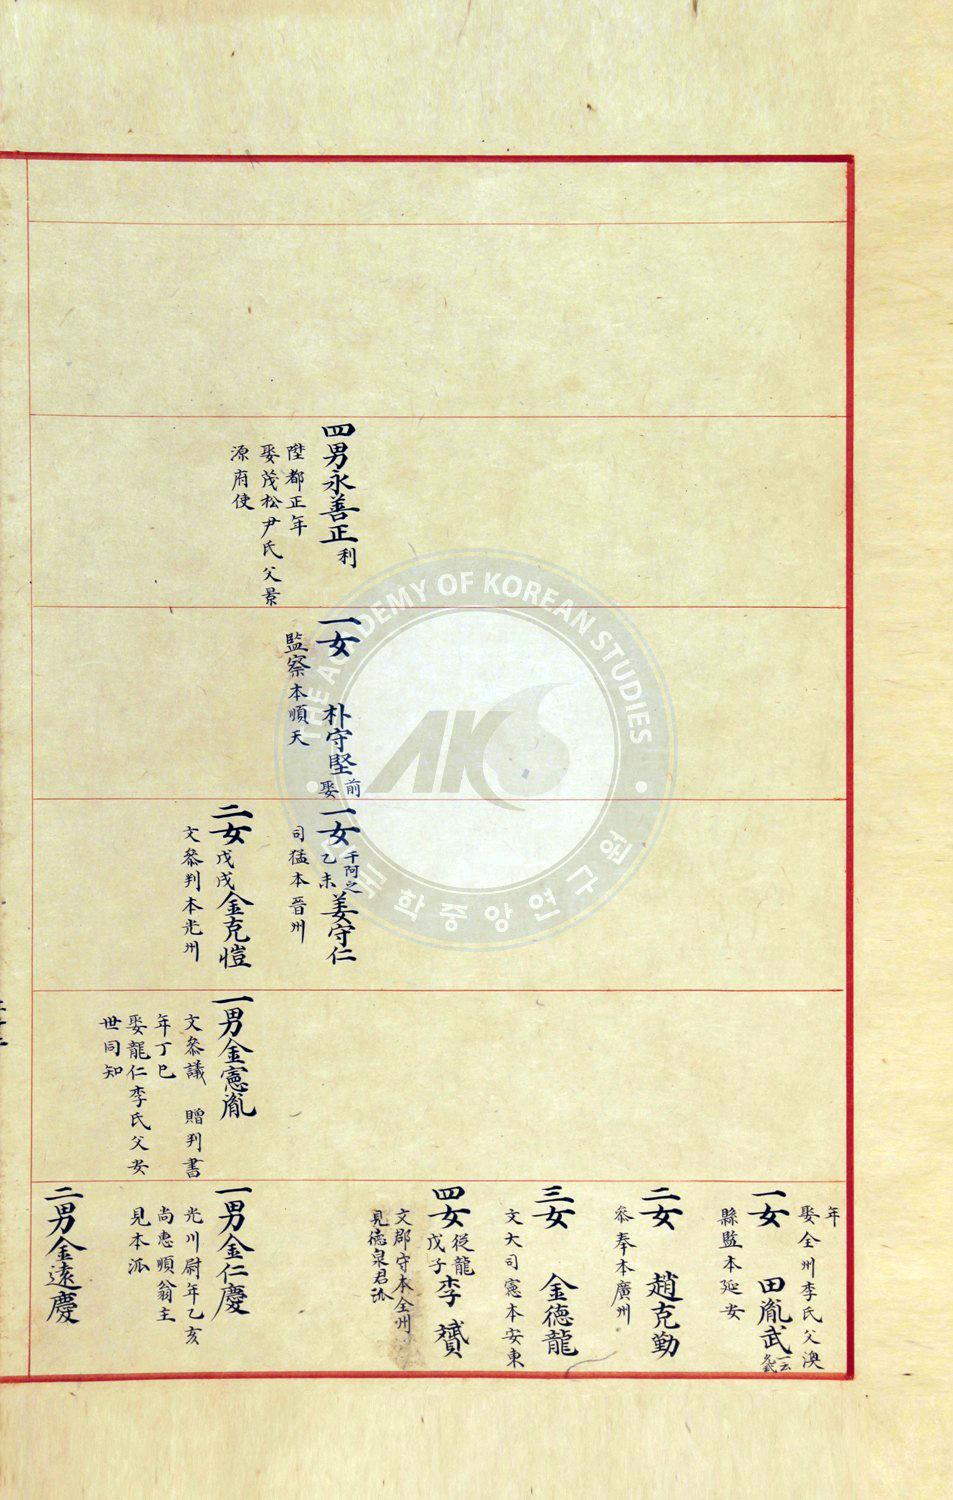 四男永善正利
陞都正年
娶茂松尹氏父景
源府使
一女 朴守堅前娶
監察本順天
一女乙未千阿之姜守仁
司猛本晉州
二女戊戌金克愷
文叅判本光州
一男金憲胤
文叅議 贈判書
年丁巳
娶龍仁李氏父安
世同知
年
娶全州李氏父澳
一女 田胤武一云
縣監本延安
二女 趙克勤
叅奉本廣州
三女 金德龍
文大司憲本安東
四女從龍戊子李贇
文郡守本全州
見德泉君派
一男金仁慶
光川尉年乙亥
尚惠順翁主
見本派
二男金遠慶
THE ACADEMY OF KOREAN STUDIES
AKS
한국학중앙연구원